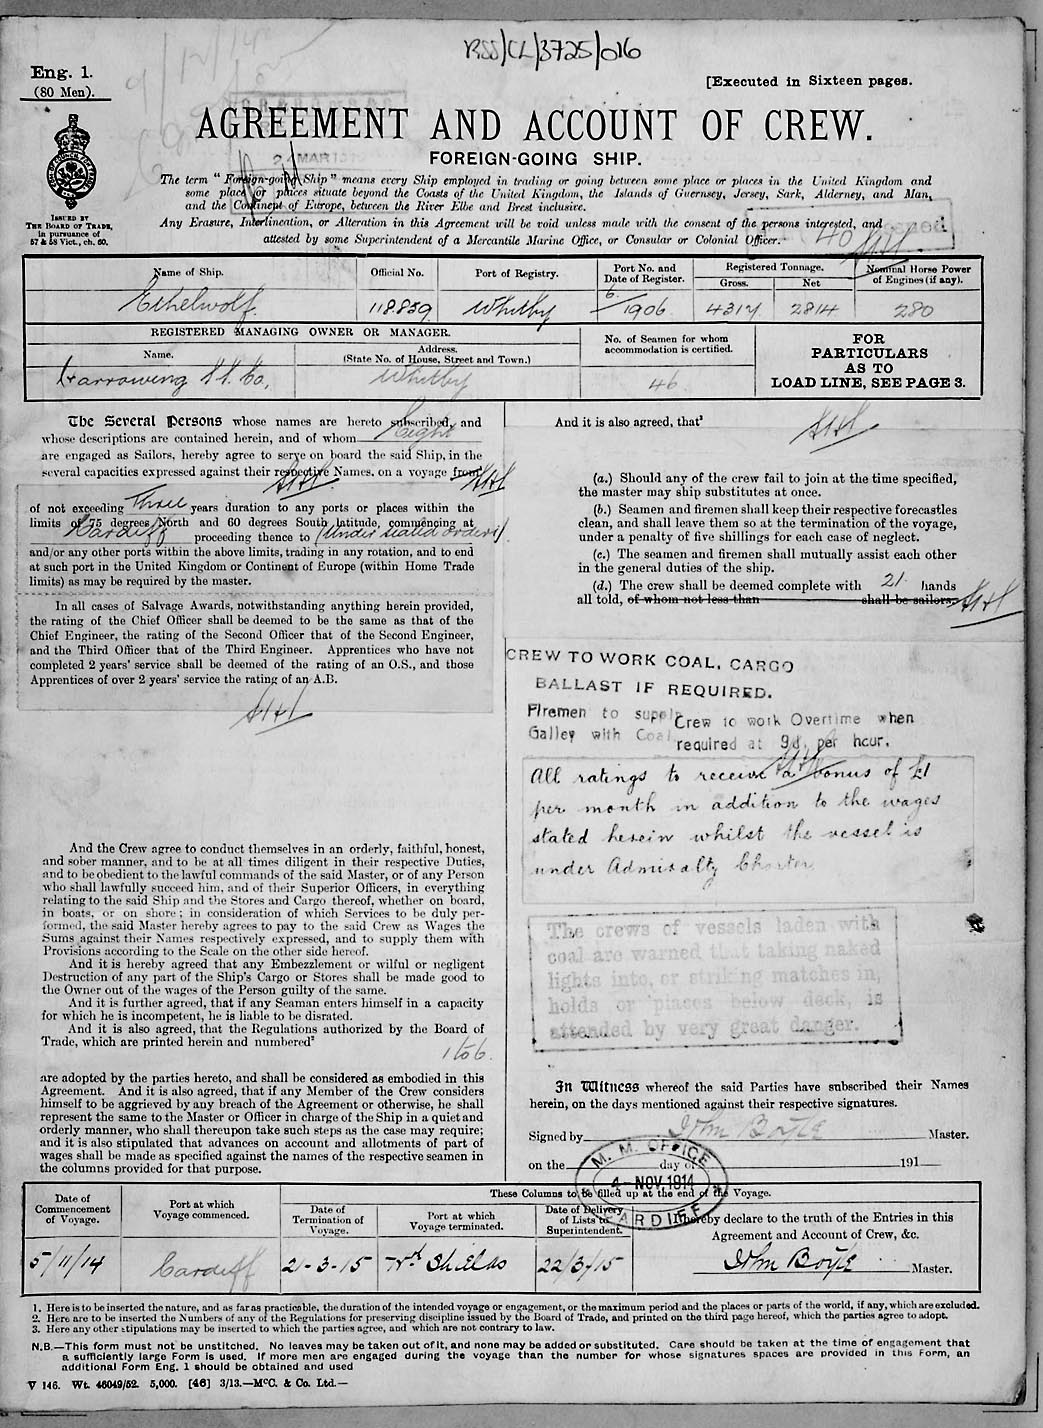 RSS/CL/3725/016
Eng. 1.
(80 Men).
[Executed in Sixteen pages.
AGREEMENT AND ACCOUNT OF CREW.
FOREIGN-GOING SHIP.
ISSUED BY
THE BOARD OF TRADE,
in pursuance of
57 & 58 Vict., ch. 60.
The term "Foreign-going Ship" means every Ship employed in trading or going between some place or places in the United Kingdom and
some place or places situate beyond the Coasts of the United Kingdom, the Islands of Guernsey, Jersey, Sark, Alderney, and Man,
and the Continent of Europe, between the River Elbe and Brest inclusive.
Any Erasure, Interlineation, or Alteration in this Agreement will be void unless made with the consent of the persons interested, and
attested by some Superintendent of a Mercantile Marine Office, or Consular or Colonial Officer.
Name of Ship. Official No. Port of Registry. Port No. and Date of Register. Registered Tonnage. Gross. Net Nominal Horse Power of Engines (if any).
Ethelwolf. 118.859 Whitby 6/1906 4317 2814 280
REGISTERED MANAGING OWNER OR MANAGER.
Name. Address. (State No. of House, Street and Town.)
No. of Seamen for whom accommodation is certified.
Harrowing S.S. Co, Whitby 46
FOR
PARTICULARS
AS TO
LOAD LINE, SEE PAGE 3.
The Several Persons whose names are hereto subscribed, and
whose descriptions are contained herein, and of whom Eight
are engaged as Sailors, hereby agree to serve on board the said Ship, in the
several capacities expressed against their respective Names, on a voyage from
of not exceeding Three years duration to any ports or places within the
limits of 75 degrees North and 60 degrees South latitude, commencing at
Cardiff proceeding thence to (Under sealed orders)
and/or any other ports within the above limits, trading in any rotation, and to end
at such port in the United Kingdom or Continent of Europe (within Home Trade
limits) as may be required by the master.
In all cases of Salvage Awards, notwithstanding anything herein provided,
the rating of the Chief Officer shall be deemed to be the same as that of the
Chief Engineer, the rating of the Second Officer that of the Second Engineer,
and the Third Officer that of the Third Engineer. Apprentices who have not
completed 2 years' service shall be deemed of the rating of an O.S., and those
Apprentices of over 2 years' service the rating of an A.B.
And the Crew agree to conduct themselves in an orderly, faithful, honest,
and sober manner, and to be at all times diligent in their respective Duties,
and to be obedient to the lawful commands of the said Master, or of any Person
who shall lawfully succeed him, and of their Superior Officers, in everything
relating to the said Ship and the Stores and Cargo thereof, whether on board,
in boats, or on shore; in consideration of which Services to be duly per-
formed, the said Master hereby agrees to pay to the said Crew as Wages the
Sums against their Names respectively expressed, and to supply them with
Provisions according to the Scale on the other side hereof.
And it is hereby agreed that any Embezzlement or wilful or negligent
Destruction of any part of the Ship's Cargo or Stores shall be made good to
the Owner out of the wages of the Person guilty of the same.
And it is further agreed, that if any Seaman enters himself in a capacity
for which he is incompetent, he is liable to be disrated.
And it is also agreed, that the Regulations authorized by the Board of
Trade, which are printed herein and numbered²
1 to 6.
are adopted by the parties hereto, and shall be considered as embodied in this
Agreement. And it is also agreed, that if any Member of the Crew considers
himself to be aggrieved by any breach of the Agreement or otherwise, he shall
represent the same to the Master or Officer in charge of the Ship in a quiet and
orderly manner, who shall thereupon take such steps as the case may require;
and it is also stipulated that advances on account and allotments of part of
wages shall be made as specified against the names of the respective seamen in
the columns provided for that purpose.
And it is also agreed, that³
(a.) Should any of the crew fail to join at the time specified,
the master may ship substitutes at once.
(b.) Seamen and firemen shall keep their respective forecastles
clean, and shall leave them so at the termination of the voyage,
under a penalty of five shillings for each case of neglect.
(c.) The seamen and firemen shall mutually assist each other
in the general duties of the ship.
(d.) The crew shall be deemed complete with 21 hands
all told, of whom not less than shall be sailors.
CREW TO WORK COAL, CARGO
BALLAST IF REQUIRED.
Firemen to supply
Galley with Coal
Crew to work Overtime when
required at 9d. per hour.
All ratings to receive a bonus of £1
per month in addition to the wages
stated herein whilst the vessel is
under Admiralty Charter
The crews of vessels laden with
coal are warned that taking naked
lights into, or striking matches in,
holds or places below deck, is
attended by very great danger.
In Witness whereof the said Parties have subscribed their Names
herein, on the days mentioned against their respective signatures.
Signed by John Boyle Master.
on the day of 191
M. M. OFFICE
4 - NOV. 1914
CARDIFF
Date of Commencement of Voyage. Port at which Voyage commenced.
These Columns to be filled up at the end of the Voyage.
Date of Termination of Voyage. Port at which Voyage terminated. Date of Delivery of Lists to Superintendent.
I hereby declare to the truth of the Entries in this
Agreement and Account of Crew, &c.
5/11/14 Cardiff 2-3-15 Nth Shields 22/3/15
John Boyle Master.
1. Here is to be inserted the nature, and as far as practicable, the duration of the intended voyage or engagement, or the maximum period and the places or parts of the world, if any, which are excluded.
2. Here are to be inserted the Numbers of any of the Regulations for preserving discipline issued by the Board of Trade, and printed on the third page hereof, which the parties agree to adopt.
3. Here any other stipulations may be inserted to which the parties agree, and which are not contrary to law.
N.B.—This form must not be unstitched. No leaves may be taken out of it, and none may be added or substituted. Care should be taken at the time of engagement that
a sufficiently large Form is used. If more men are engaged during the voyage than the number for whose signatures spaces are provided in this Form, an
additional Form Eng. 1 should be obtained and used
V 146. Wt. 46049/52. 5,000. [46] 3/13.—McC. & Co. Ltd.—